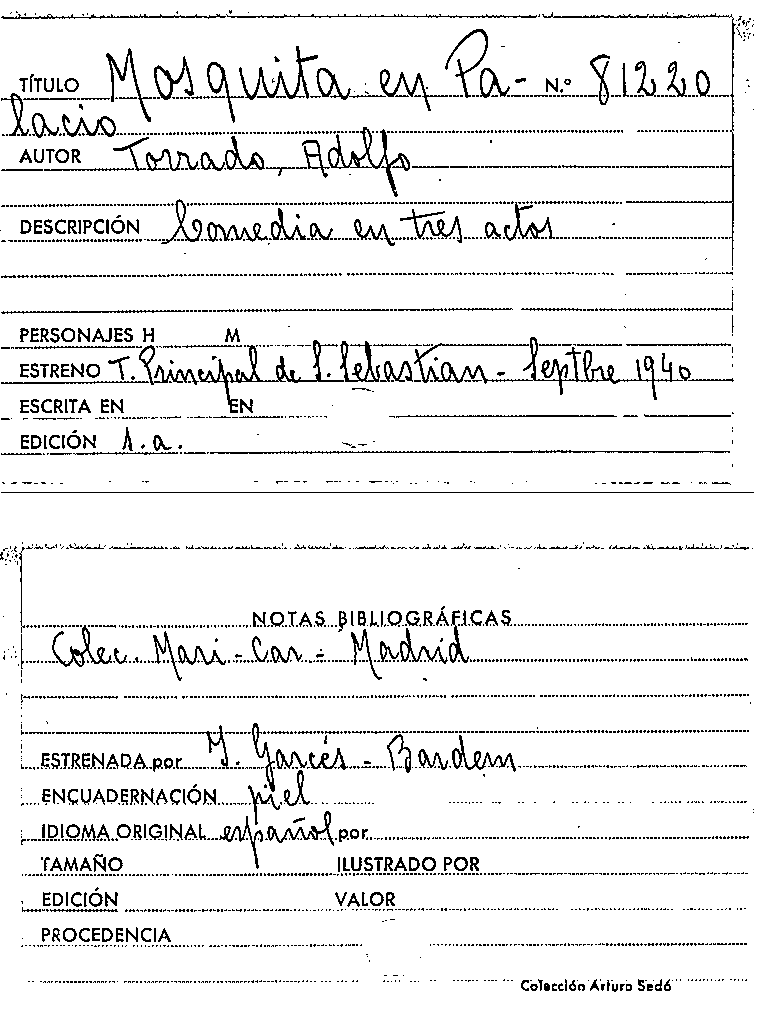 TÍTULO Mosquita en Pa- N.º 81220
lacio
AUTOR Torrado, Adolfo
DESCRIPCIÓN Comedia en tres actos
PERSONAJES H M
ESTRENO T. Principal de S. Sebastian - Septbre 1940
ESCRITA EN EN
EDICIÓN s.a.
NOTAS BIBLIOGRÁFICAS
Colec. Mari-Car - Madrid
ESTRENADA por I. Garcés - Bardem
ENCUADERNACIÓN piel
IDIOMA ORIGINAL español por
TAMAÑO ILUSTRADO POR
EDICIÓN VALOR
PROCEDENCIA
Colección Arturo Sedó